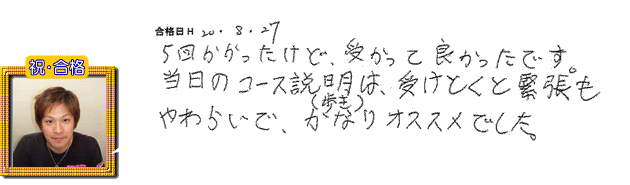 合格日H 20.8.27
5回かかったけど、受かって良かったです。
当日のコース説明は、受けとくと緊張も
(歩き)
やわらいで、かなりオススメでした。
祝・合格